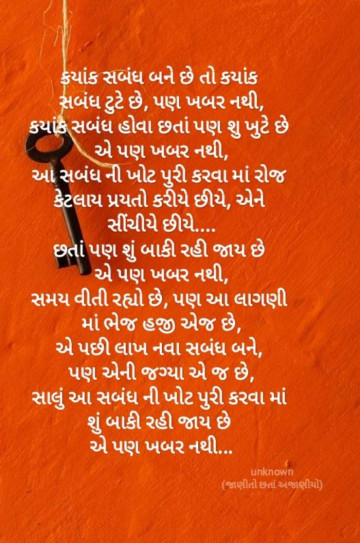 કયાંક સબંધ બને છે તો કયાંક
સબંધ ટુટે છે, પણ ખબર નથી,
કયાંક સબંધ હોવા છતાં પણ શુ ખુટે છે
એ પણ ખબર નથી,
આ સબંધ ની ખોટ પુરી કરવા માં રોજ
કેટલાય પ્રયતો કરીયે છીયે, એને
સીંચીયે છીયે....
છતાં પણ શું બાકી રહી જાય છે
એ પણ ખબર નથી,
સમય વીતી રહ્યો છે, પણ આ લાગણી
માં ભેજ હજી એજ છે,
એ પછી લાખ નવા સબંધ બને,
પણ એની જગ્યા એ જ છે,
સાલું આ સબંધ ની ખોટ પુરી કરવા માં
શું બાકી રહી જાય છે
એ પણ ખબર નથી...
unknown
(જાણીતો છતાં અજાણીયો)